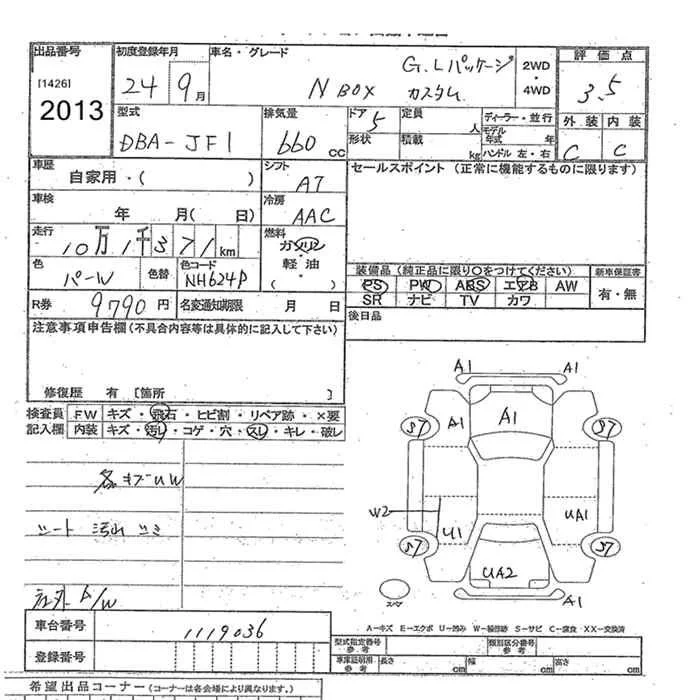 出品番号 初度登録年月 車名・グレード 評価点
[1426] 2013
24 9月 N BOX G.Lパッケージ カスタム 2WD・4WD 3.5
型式 排気量 ドア 定員 ディーラー・並行 外装 内装
DBA-JF1 660cc 5 人 モデル年式 年 C C
形状 積載 kg ハンドル 左・右
車歴 シフト セールスポイント (正常に機能するものに限ります)
自家用・( ) AT
車検 冷房
年 月( 日) AAC
走行 燃料
10万1千371km ガソリン・軽油・( )
色 色替 色コード
パーW NH624P
装備品 (純正品に限り○をつけてください) 新車保証書
PS PW ABS エアB AW 有・無
SR ナビ TV カワ
R券 9790円 名変通知期限 月 日 後日品
注意事項申告欄(不具合内容等は具体的に記入して下さい)
修復歴 有 [箇所 ]
検査員記入欄
FW キズ・飛石・ヒビ割・リペア跡・×要
内装 キズ・汚れ・コゲ・穴・スレ・キレ・破レ
各キズUW
シート 汚れ
A/W
A1 A1
A1 A1
S7 S7
W2 U1 UA1
S7 S7
UA2
A1
スペア
A-キズ E-エクボ U-凹み W-補修跡 S-サビ C-腐食 XX-交換済
車台番号 1119036
登録番号
型式指定番号 参考 類別区分番号 参考
車庫証明用 参考 長さ cm 幅 cm 高さ cm
希望出品コーナー(コーナーは各会場により異なります。)